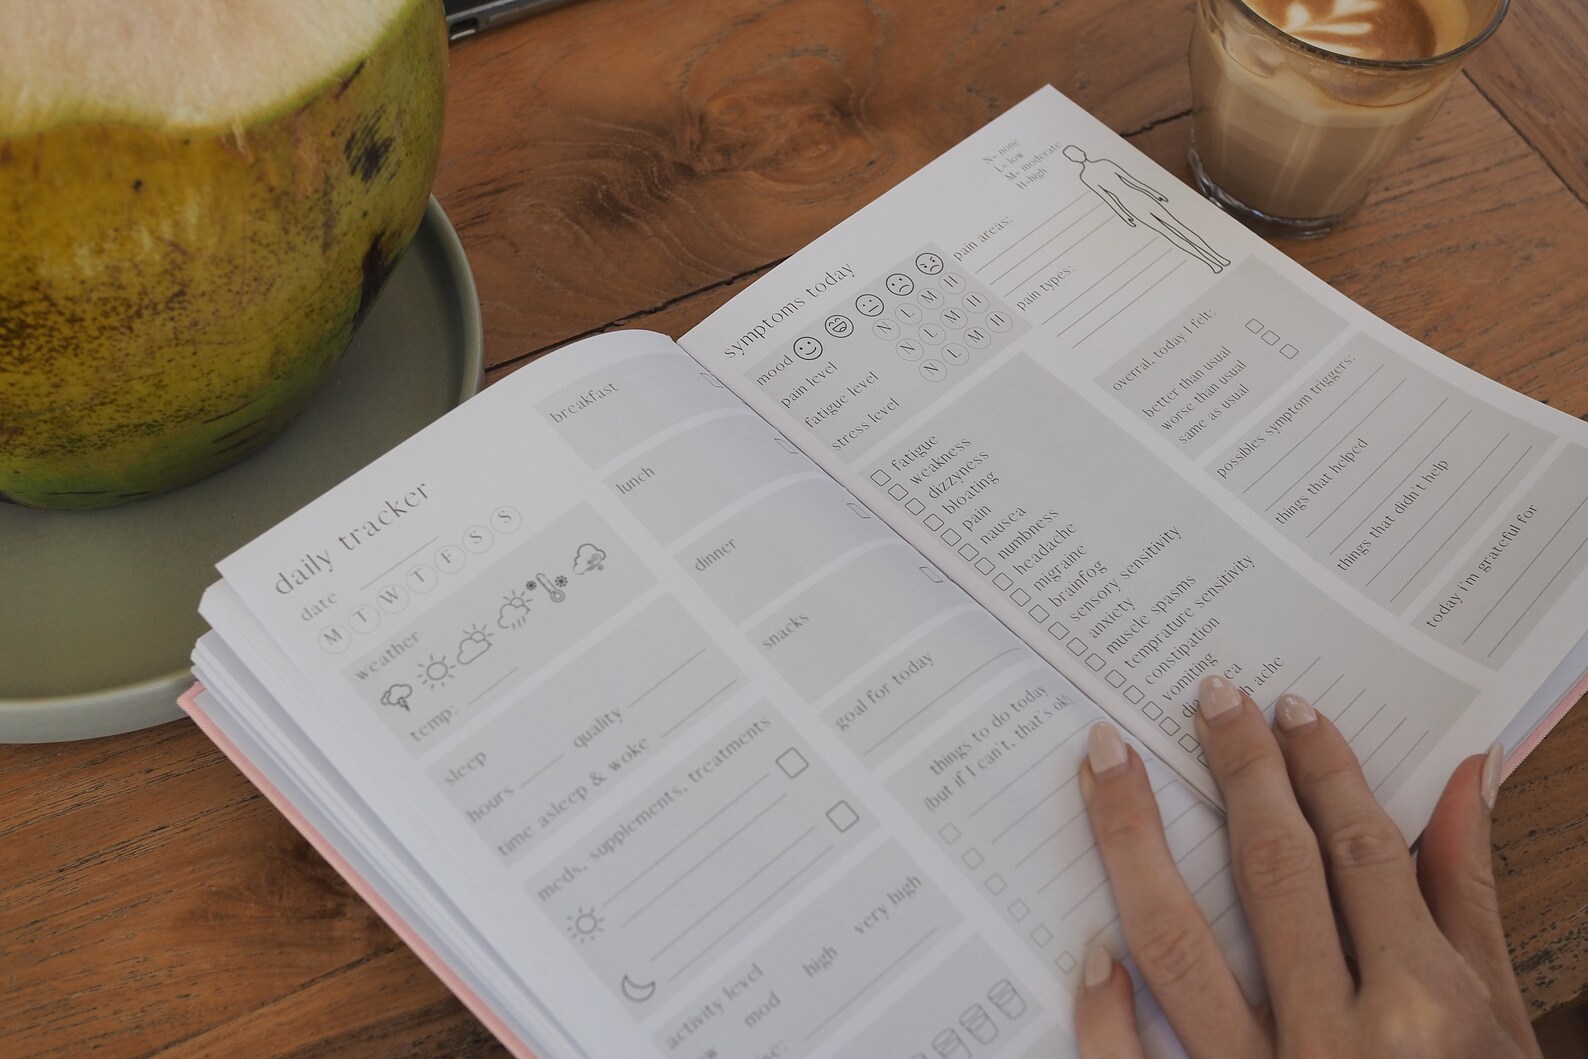 daily tracker
date
M T W T F S S
weather
temp:
sleep
hours quality
time asleep & woke
meds, supplements, treatments
activity level
mod high very high
breakfast
lunch
dinner
snacks
goal for today
things to do today
(but if I can't, that's ok)
symptoms today
mood
pain level N L M H
fatigue level N L M H
stress level N L M H
fatigue
weakness
dizzyness
bloating
pain
nausea
numbness
headache
migraine
brainfog
sensory sensitivity
anxiety
muscle spasms
temprature sensitivity
constipation
vomiting
ache
N= none
L= low
M= moderate
H=high
pain areas:
pain types:
overral, today I felt:
better than usual
worse than usual
same as usual
possibles symptom triggers:
things that helped
things that didn't help
today i'm grateful for